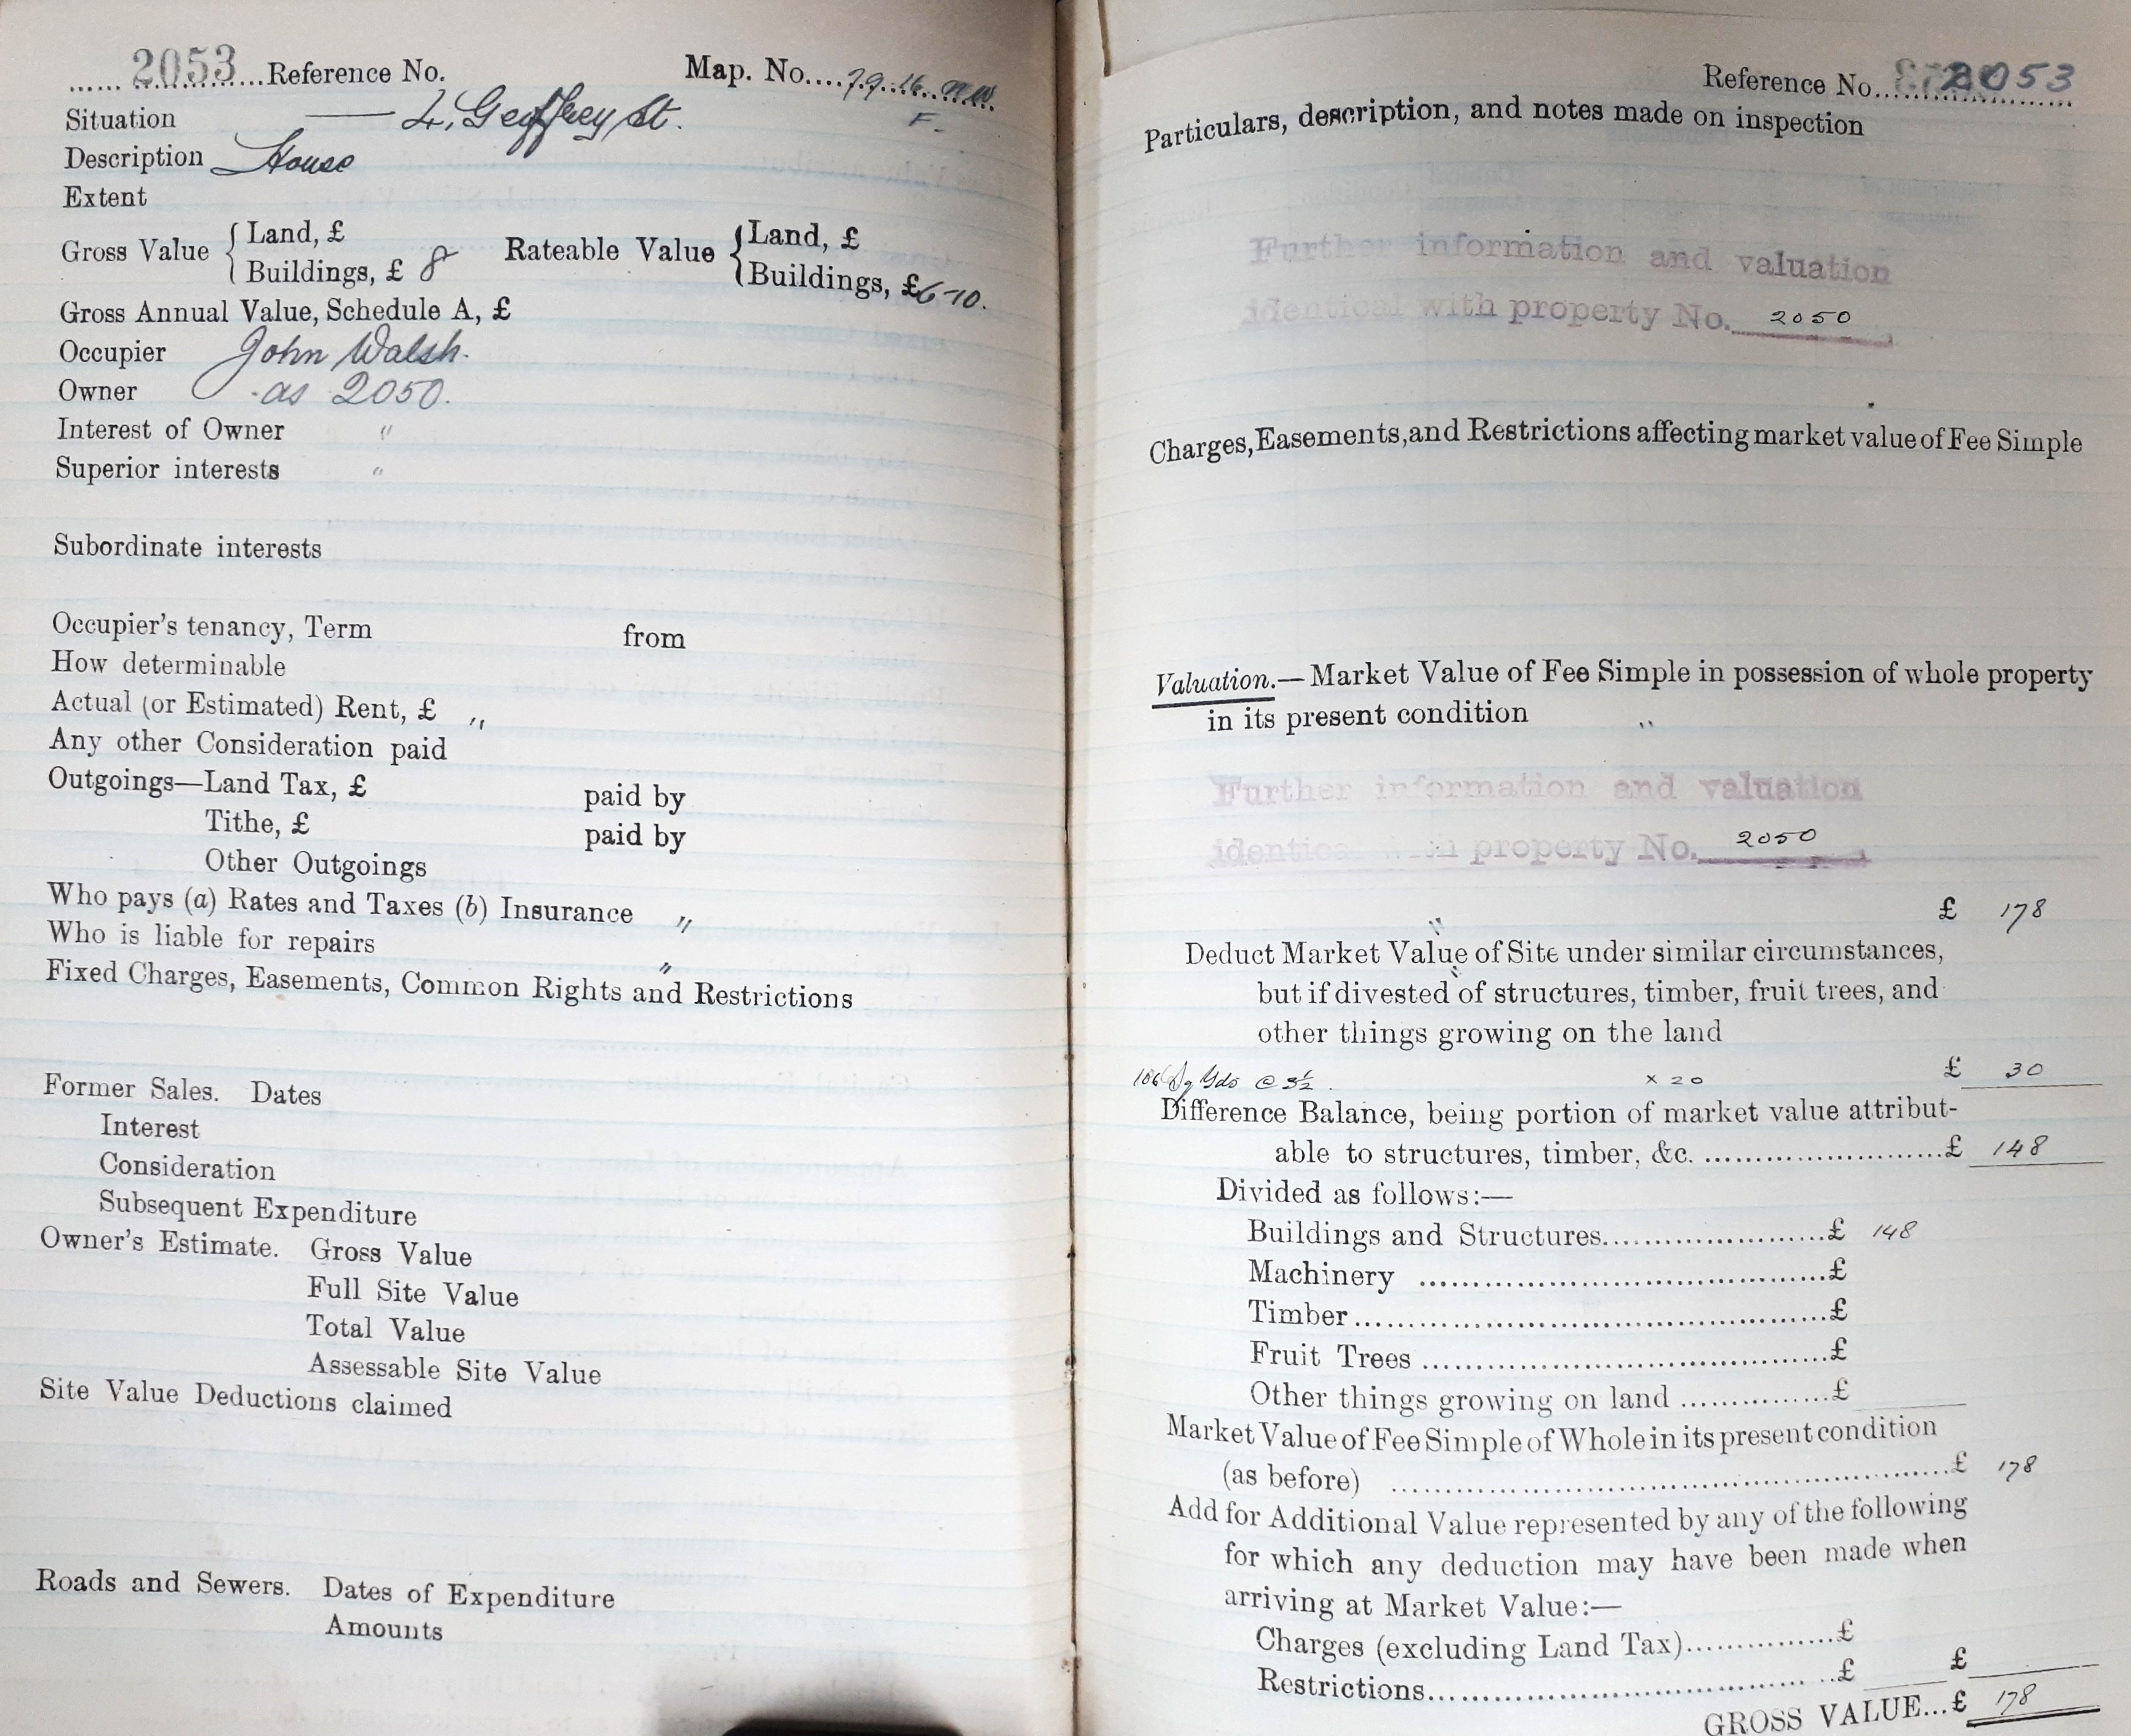 ...... 2053 ...Reference No. Map. No.... 79.16. NW
F.
Situation — 4, Geoffrey St.
Description House
Extent
Gross Value { Land, £ Rateable Value { Land, £
Buildings, £ 8 Buildings, £ 6-10.
Gross Annual Value, Schedule A, £
Occupier John Walsh.
Owner - as 2050.
Interest of Owner "
Superior interests "
Subordinate interests
Occupier's tenancy, Term from
How determinable
Actual (or Estimated) Rent, £ "
Any other Consideration paid
Outgoings—Land Tax, £ paid by
Tithe, £ paid by
Other Outgoings
Who pays (a) Rates and Taxes (b) Insurance "
Who is liable for repairs "
Fixed Charges, Easements, Common Rights and Restrictions
Former Sales. Dates
Interest
Consideration
Subsequent Expenditure
Owner's Estimate. Gross Value
Full Site Value
Total Value
Assessable Site Value
Site Value Deductions claimed
Roads and Sewers. Dates of Expenditure
Amounts
Reference No. 2053
Particulars, description, and notes made on inspection
Further information and valuation
identical with property No. 2050
Charges, Easements, and Restrictions affecting market value of Fee Simple
Valuation.—Market Value of Fee Simple in possession of whole property
in its present condition "
Further information and valuation
identical with property No. 2050
" £ 178
Deduct Market Value of Site under similar circumstances,
but if divested of structures, timber, fruit trees, and
other things growing on the land
106 Sq Yds @ 3½. x 20 £ 30
Difference Balance, being portion of market value attribut-
able to structures, timber, &c. ........................£ 148
Divided as follows:—
Buildings and Structures......................£ 148
Machinery ........................................£
Timber...............................................£
Fruit Trees ........................................£
Other things growing on land ..............£
Market Value of Fee Simple of Whole in its present condition
(as before) .......................................................£ 178
Add for Additional Value represented by any of the following
for which any deduction may have been made when
arriving at Market Value:—
Charges (excluding Land Tax)..............£
Restrictions........................................£ £
GROSS VALUE...£ 178